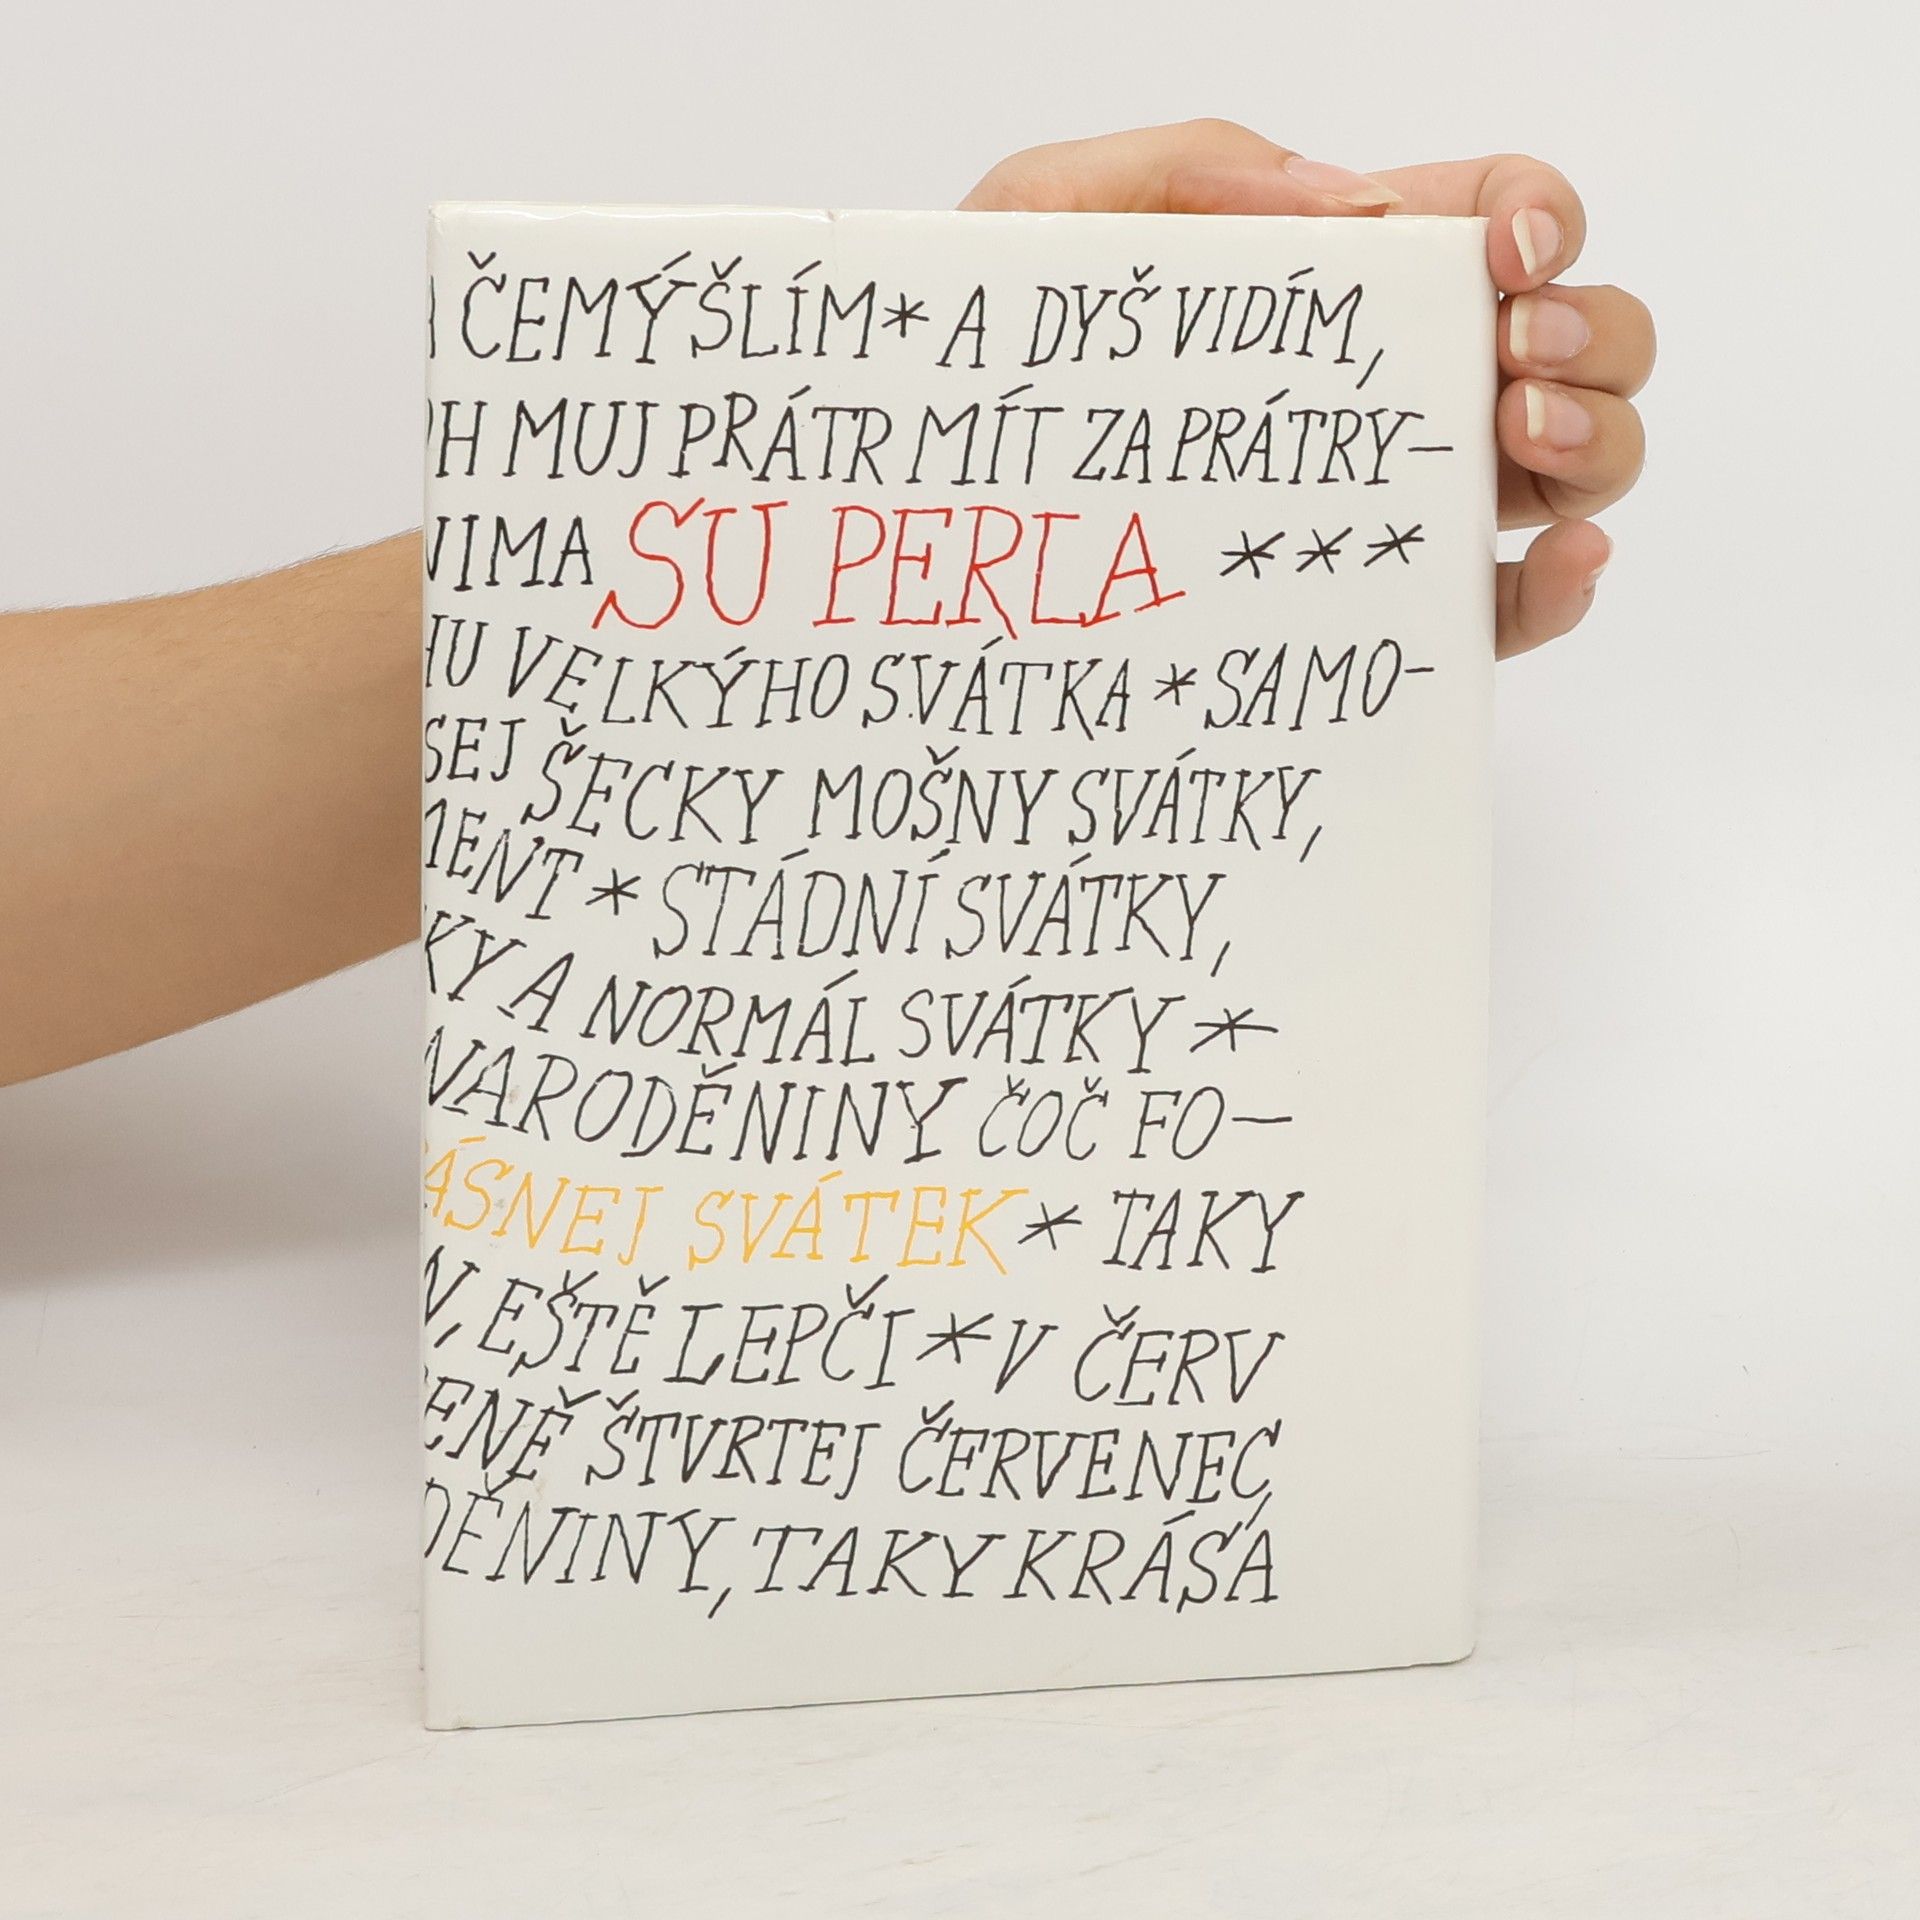 ČEMÝŠLÍM * A DYŠ VIDÍM,
H MUJ PRÁTR MÍT ZA PRÁTRY–
NIMA SU PERLA * * *
HU VELKÝHO SVÁTKA * SAMO–
SEJ ŠECKY MOŠNY SVÁTKY,
MENT * STÁDNÍ SVÁTKY,
KY A NORMÁL SVÁTKY *
NARODĚNINY ČOČ FO–
ÁSNEJ SVÁTEK * TAKY
N, EŠTĚ LEPČI * V ČERV
ENĚ ŠTVRTEJ ČERVENEC,
DĚNINY, TAKY KRÁSÁ